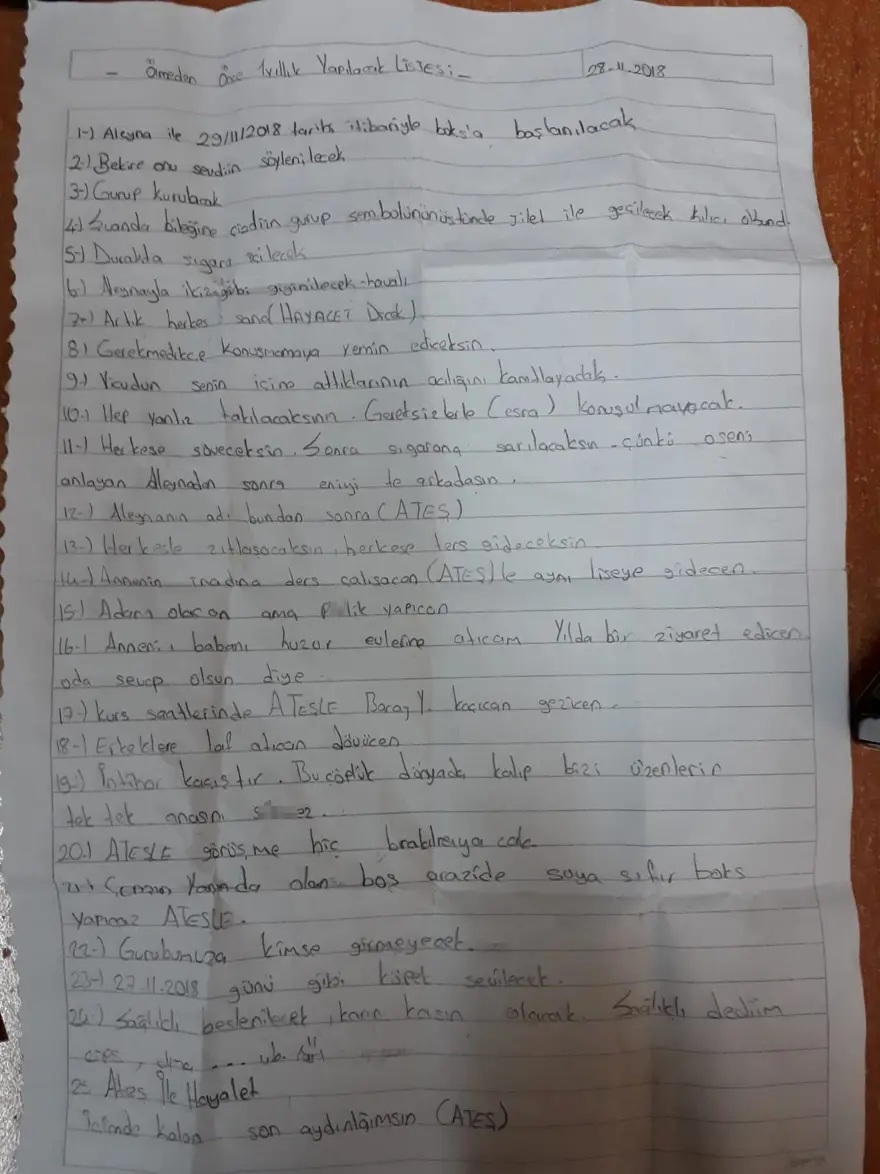 - Ölmeden Önce 1 yıllık Yapılacak Listesi -
28.11.2018
1-) Aleyna ile 29/11/2018 tarihi itibariyle boks'a başlanılacak
2-) Bekire onu sevdiin söylenilecek
3-) Gurup kurulacak
4-) Şuanda bileğine çizdiin gurup sembolününüstünde jilet ile geçilecek kılıcı
5-) Durakta sigara içilecek
6-) Aleynayla ikizgibi giyinilecek-havalı
7-) Artık herkes sana (HAYALET Dicek)
8-) Gerekmedikce konuşmamaya yemin ediceksin.
9-) Vicudun senin içine attıklarının acılığını kanıtlayacak.
10-) Hep yanlız takılacaksın. Gereksizlerle (esra) konuşulmayacak.
11-) Herkese söveceksin. Sonra sigarana sarılacaksın - çünkü oseni
anlayan Aleynadan sonra eniyi te arkadaşın.
12-) Aleynanın adı bundan sonra (ATEŞ)
13-) Herkesle zıtlaşacaksın, herkese ters gideceksin
14-) Annenin inadına ders çalışacan (ATEŞ)le aynı liseye gidecen.
15-) Adam olacan ama p lik yapıcan
16-) Anneni, babanı huzur evlerine atıcam Yılda bir ziyaret edicen
oda sevap olsun diye
17-) Kurs saatlerinde ATEŞLE kaçıcan gezicen.
18-) Erkeklere laf atıcan dövücen
19-) İntihar kaçıştır. Bu çöplük dünyada kalıp bizi üzenlerin
tek tek anasını s
20-) ATEŞLE görüşme hiç bırakılmayacak
21-) Camın Yanında olan boş arazide suya sıfır boks
yapıcaz ATEŞLE.
22-) Gurubumuza kimse girmeyecek.
23-) 27.11.2018 günü gibi köpek sevilecek.
24-) Sağlıklı beslenilecek, karın kasın olacak. Sağlıklı dediim
cips, vb.
25- Ateş İle Hayalet
İçimde kalan son aydınlığımsın (ATEŞ)